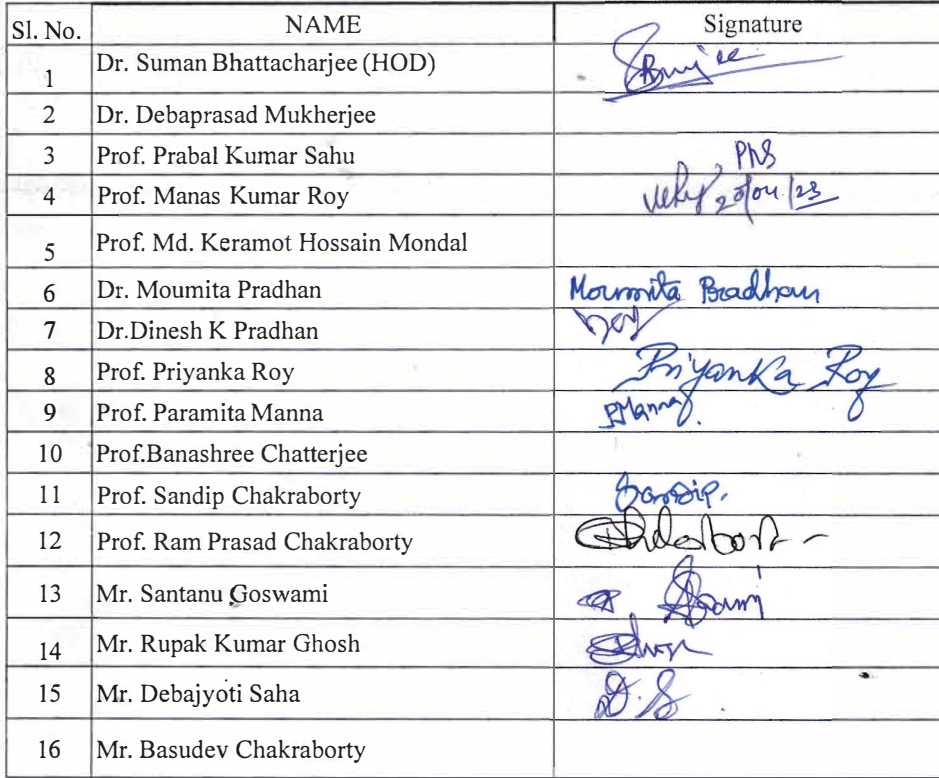 Sl. No. NAME Signature
1 Dr. Suman Bhattacharjee (HOD)
2 Dr. Debaprasad Mukherjee
3 Prof. Prabal Kumar Sahu PKS
4 Prof. Manas Kumar Roy 20/04/23
5 Prof. Md. Keramot Hossain Mondal
6 Dr. Moumita Pradhan Moumita Pradhan
7 Dr.Dinesh K Pradhan
8 Prof. Priyanka Roy Priyanka Roy
9 Prof. Paramita Manna PManna
10 Prof.Banashree Chatterjee
11 Prof. Sandip Chakraborty Sandip.
12 Prof. Ram Prasad Chakraborty
13 Mr. Santanu Goswami
14 Mr. Rupak Kumar Ghosh
15 Mr. Debajyoti Saha D.S
16 Mr. Basudev Chakraborty